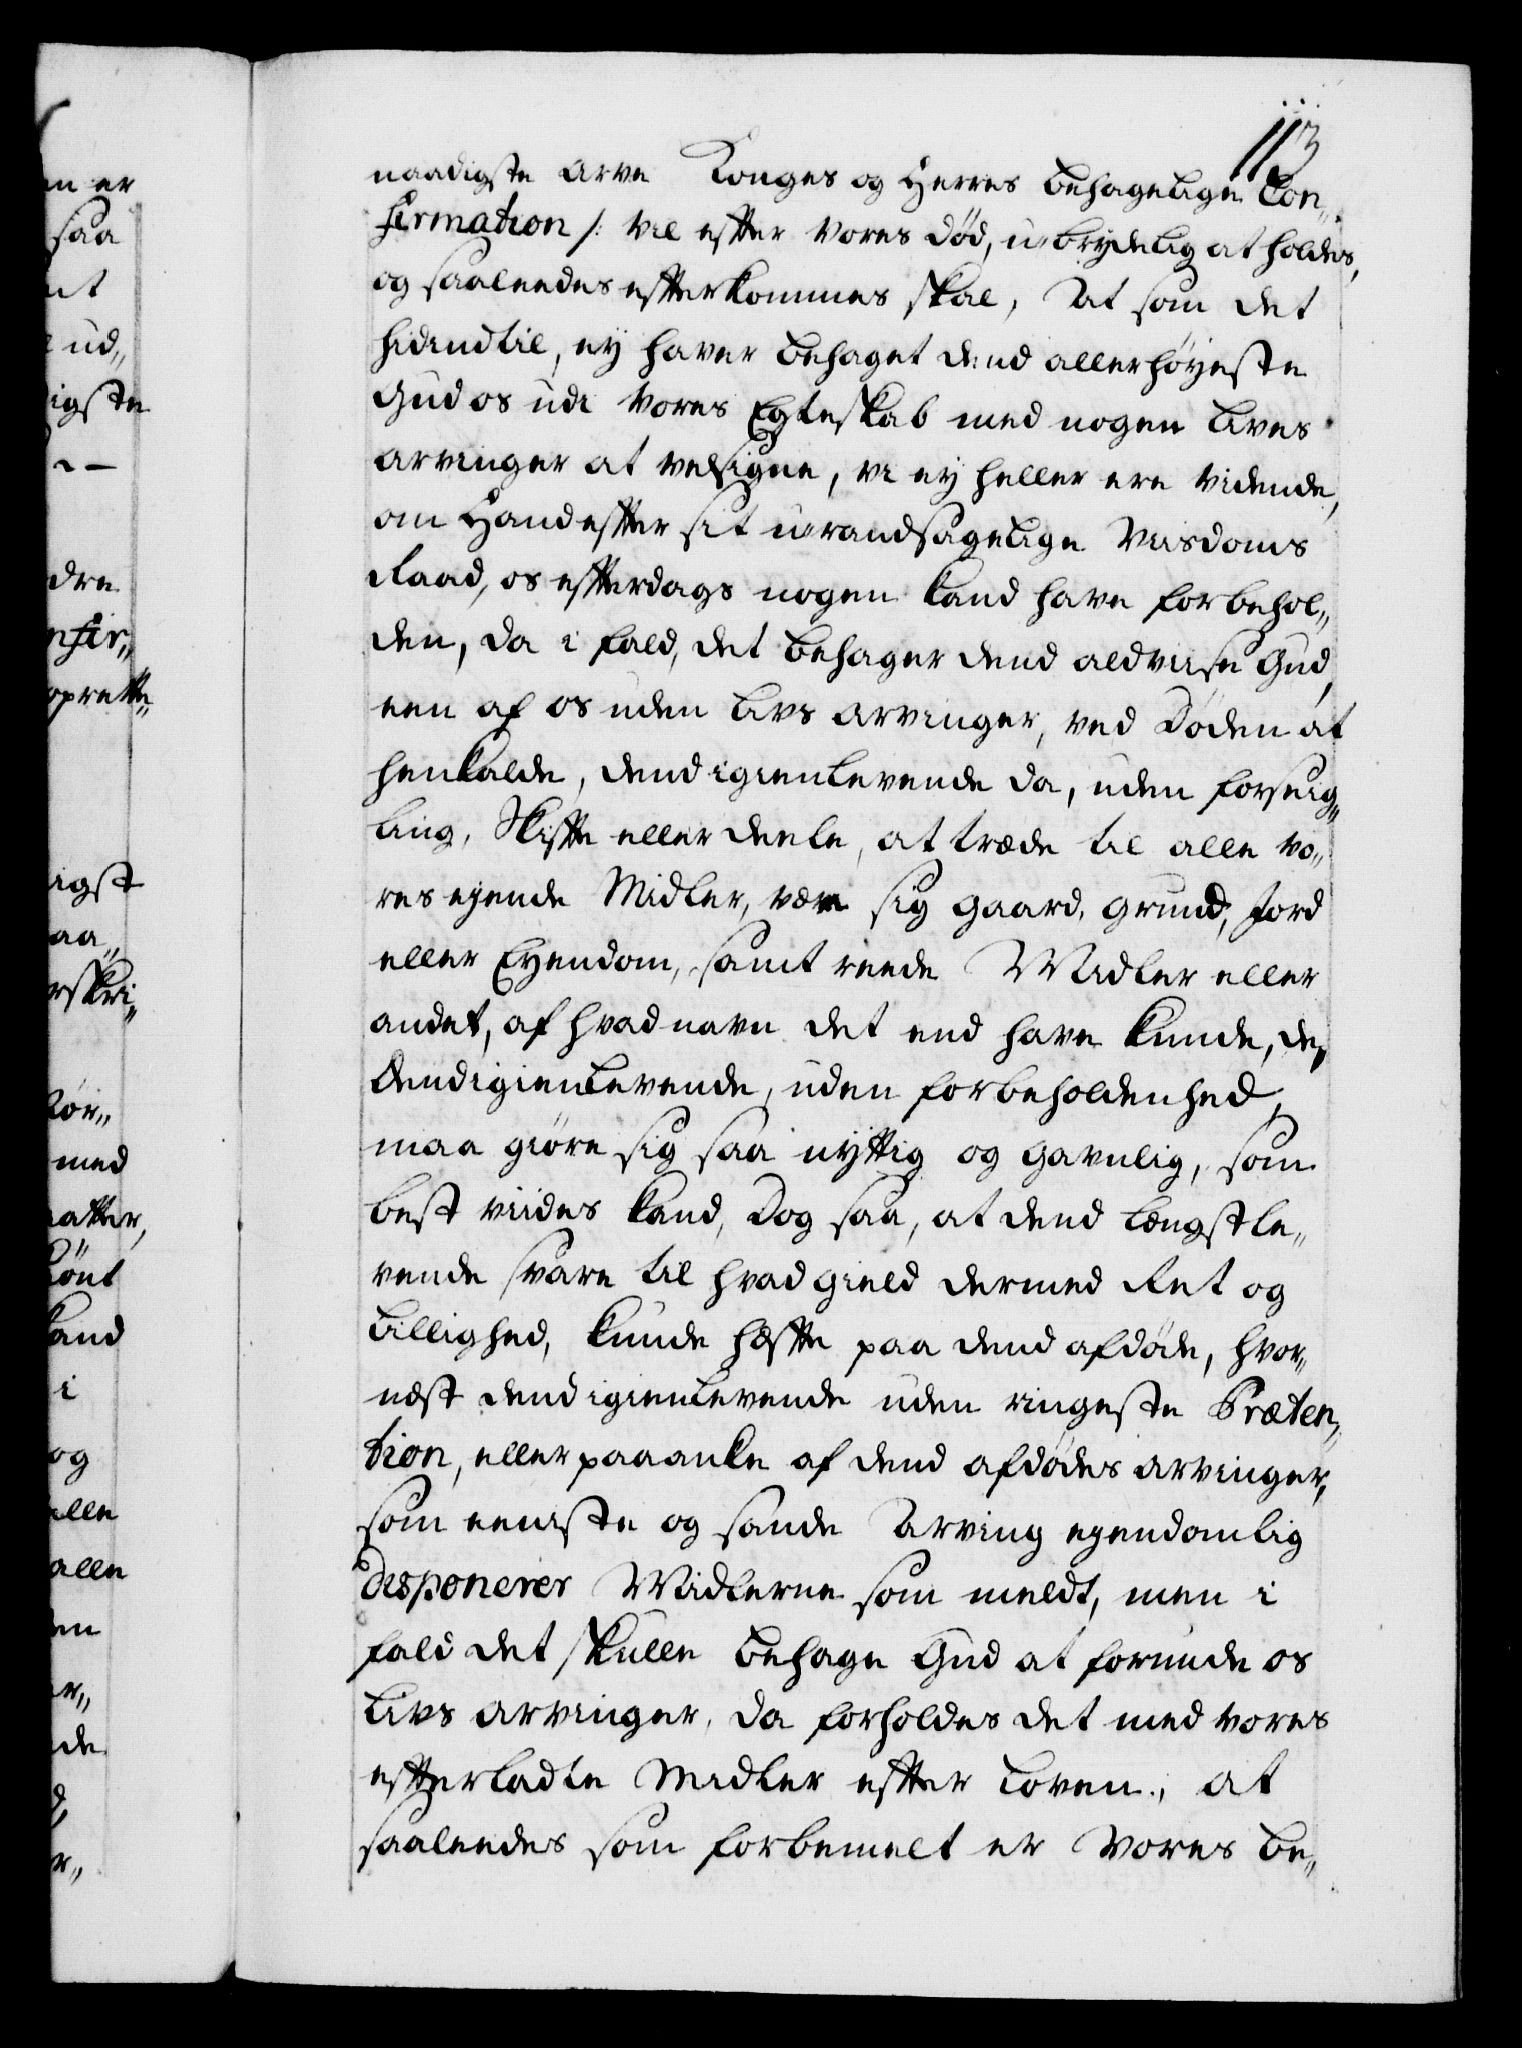 113
naadigste Arve Konges og Herres behagelige Con„
firmation /: vil effter vores død, u-brydelig at holdes,
og saaleedes efterkommes skal, At som det
hidindtil, ey haver behaget dend allerhøyeste
Gud os udi vores Egteskab med nogen Lives
arvinger at velsigne, vi ey heller ere vidende,
om Hand effter sit u-randsagelige Viisdoms
Raad, os effterdags nogen kand have forbehol„
den, da i fald, det behager dend aldviise Gud,
een af os uden Livs arvinger, ved Døden at
henkalde, dend igienlevende da, uden forseig„
ling, Skiffte eller deele, at træde til alle vo„
res eyende Midler, være sig gaard, grund, Jord
eller Eyendom, samt reede Midler eller
andet, af hvad navn det end have kunde, de,
dend igienlevende, uden forbeholdenhed,
maa giøre sig saa nyttig og gavnlig, som
best viides kand, Dog saa, at dend længstle„
vende svare til hvad gield dermed Ret og
billighed, kunde hæffte paa dend afdøde, hvor„
næst dend igienlevende uden ringeste Præten„
tion, eller paaanke af dend afdødes arvinger,
som eeniste og sande Arving eyendomlig
disponerer Midlerne som meldt, men i
fald det skulle behage Gud at forunde os
Livs arvinger, da forholdes det med vores
effterladte Midler effter Loven, at
saaleedes som forbemelt er vores be„